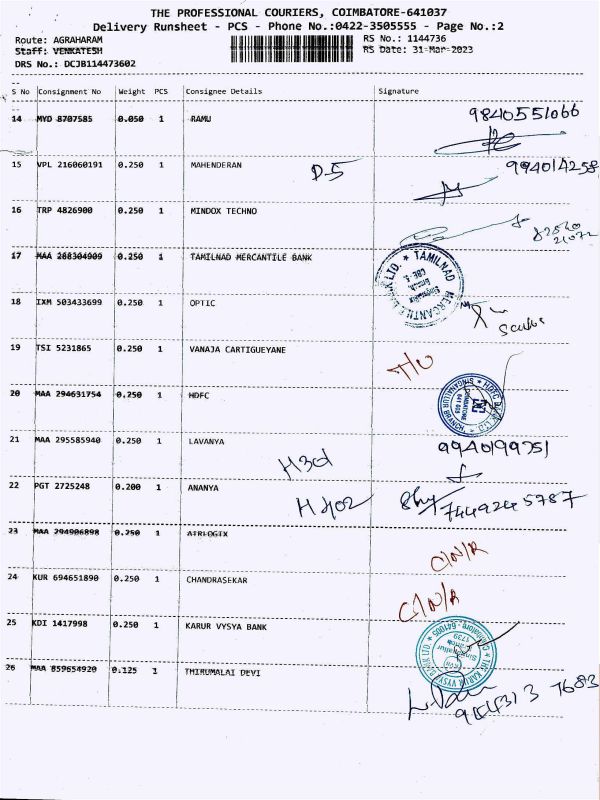 THE PROFESSIONAL COURIERS, COIMBATORE-641037
Delivery Runsheet - PCS - Phone No.:0422-3505555 - Page No.:2
Route: AGRAHARAM RS No.: 1144736
Staff: VENKATESH RS Date: 31-Mar-2023
DRS No.: DCJB114473602
S No Consignment No Weight PCS Consignee Details Signature
14 MYD 8707585 0.050 1 RAMU 9840551066
15 VPL 216060191 0.250 1 MAHENDERAN D-5 994014258
16 TRP 4826900 0.250 1 MINDOX TECHNO
17 MAA 288304909 0.250 1 TAMILNAD MERCANTILE BANK TAMILNAD MERCANTILE BANK LTD.
18 IXM 503433699 0.250 1 OPTIC
19 TSI 5231865 0.250 1 VANAJA CARTIGUEYANE
20 MAA 294631754 0.250 1 HDFC HDFC BANK LTD. SINGANALLUR BRANCH
21 MAA 295585940 0.250 1 LAVANYA H30 9940199351
22 PGT 2725248 0.200 1 ANANYA H402 7449245787
23 MAA 294906898 0.250 1 AIRLOGIX C/N/R
24 KUR 694651890 0.250 1 CHANDRASEKAR C/N/R
25 KDI 1417998 0.250 1 KARUR VYSYA BANK THE KARUR VYSYA BANK LTD. Coimbatore - 641005 1739
26 MAA 859654920 0.125 1 THIRUMALAI DEVI